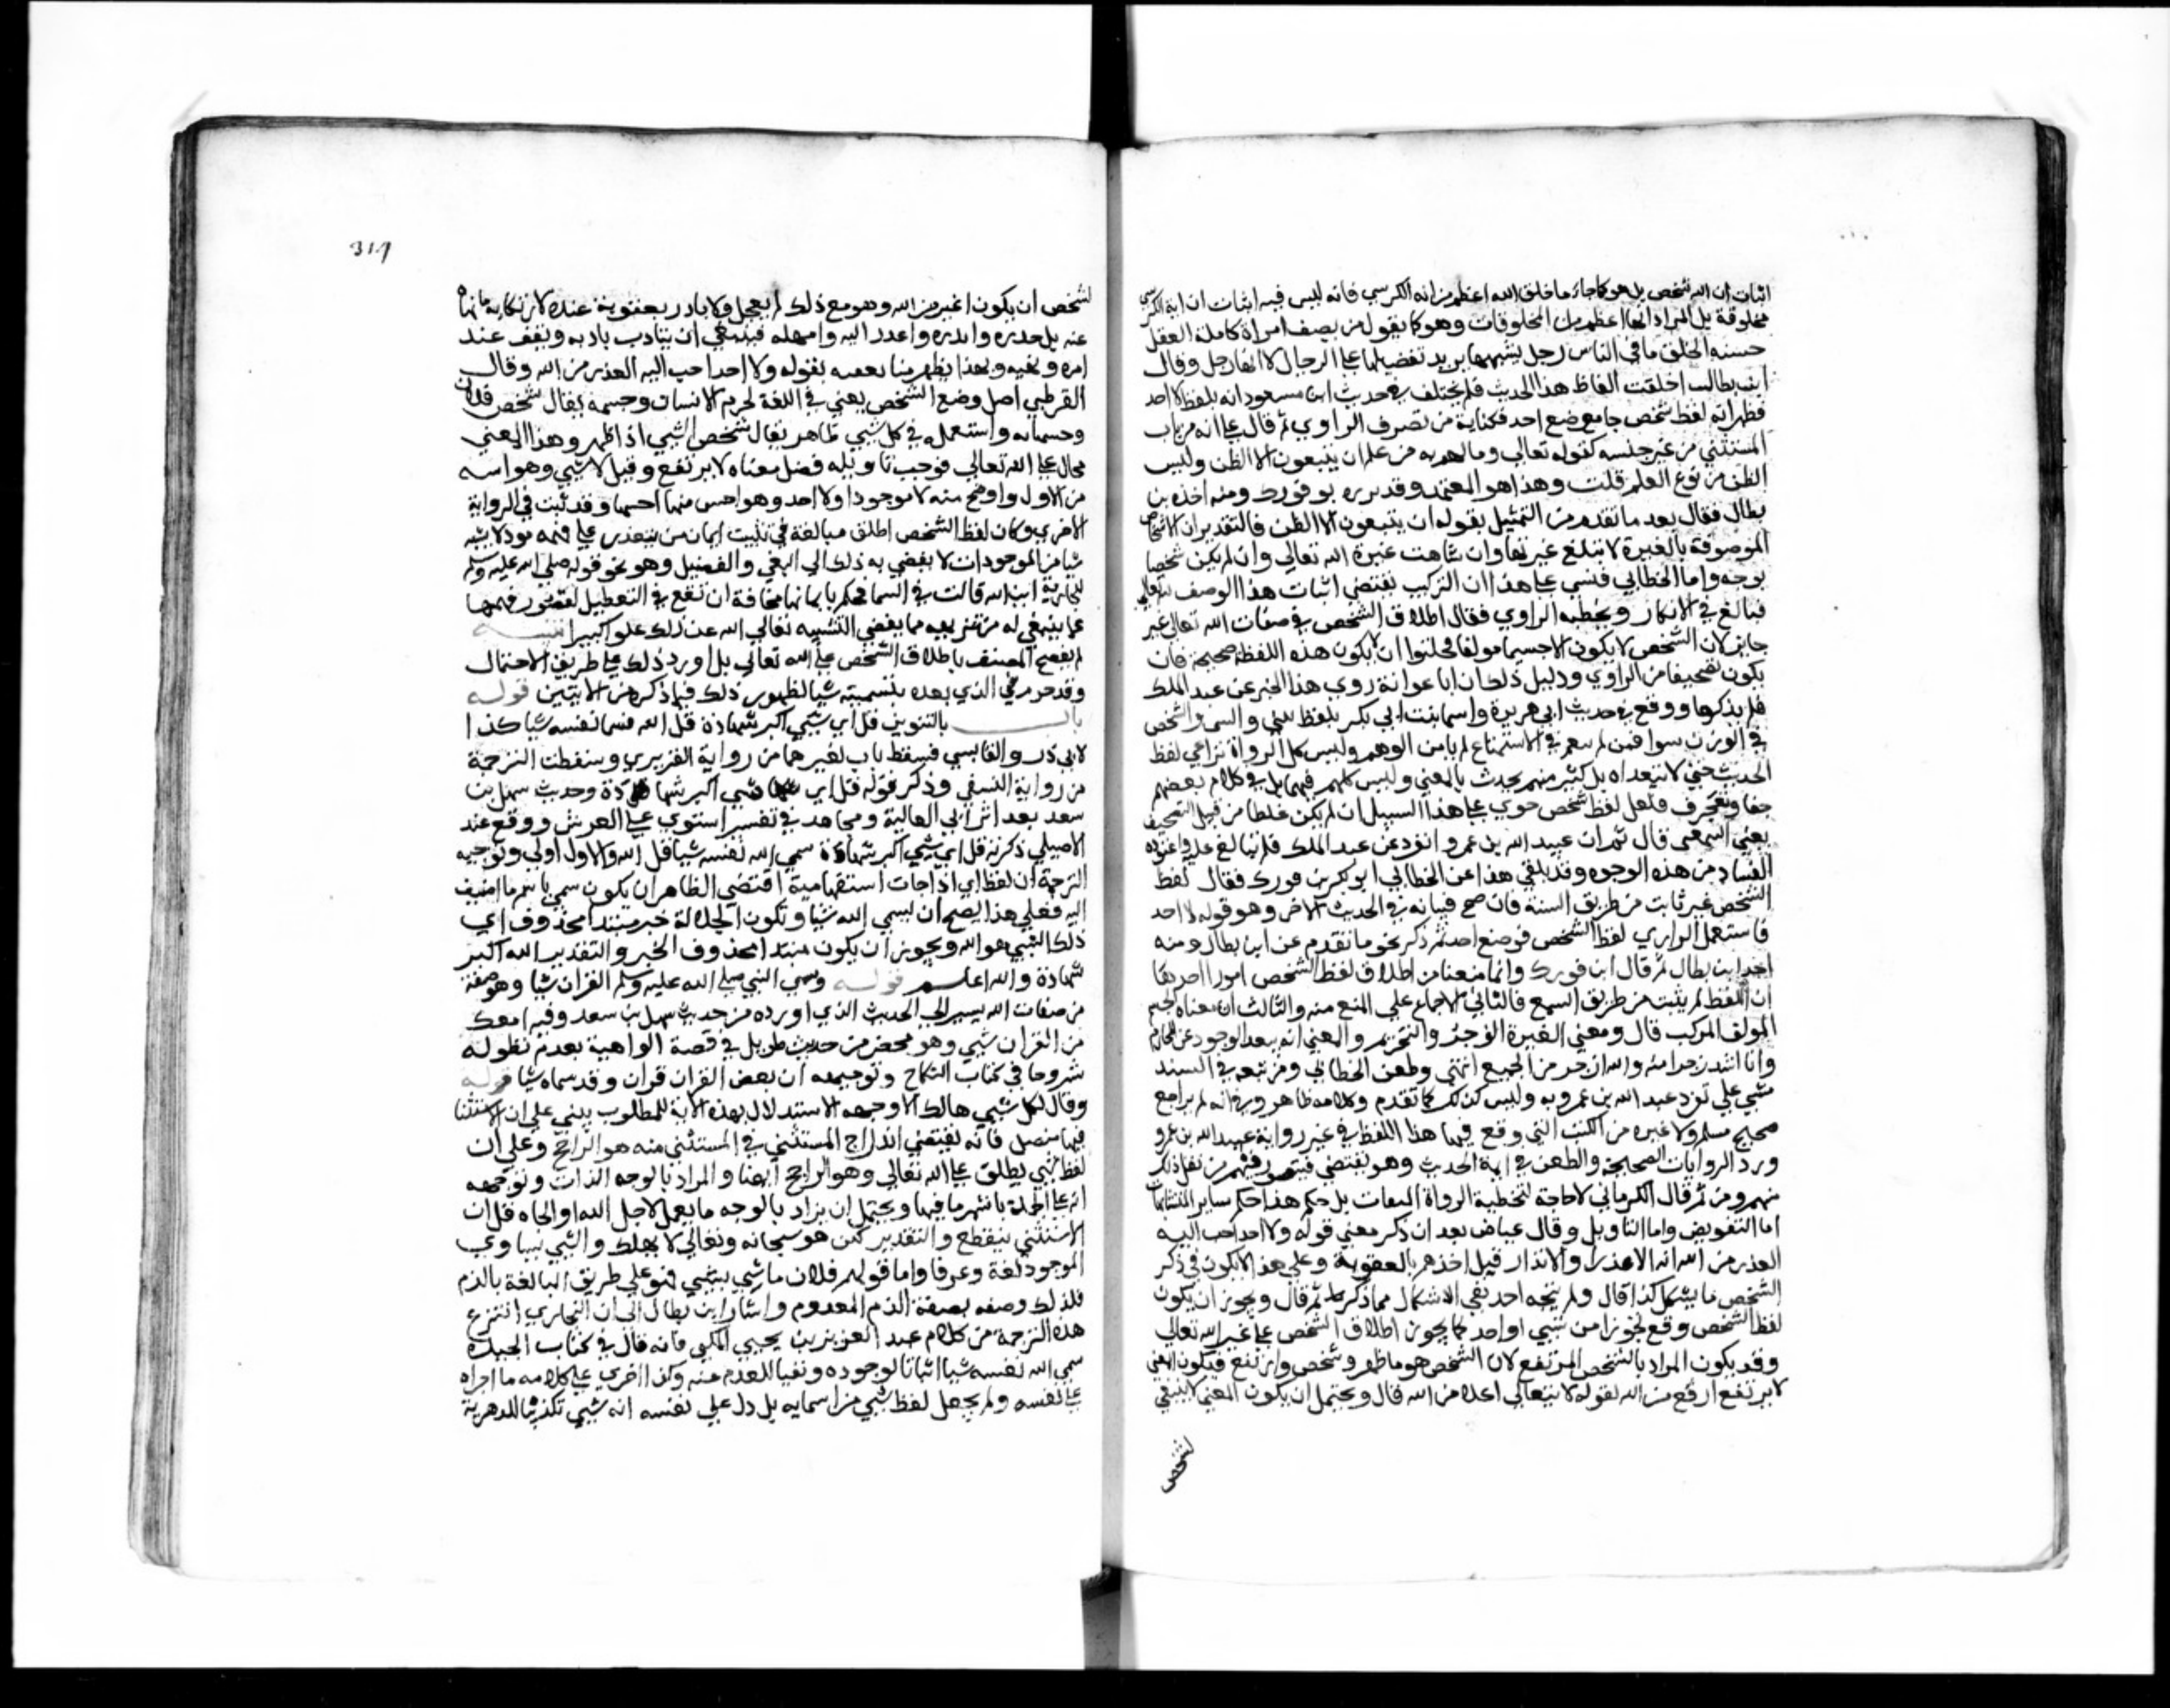 اثبات ان الله شخص بل هو كما جاء ما خلق الله اعظم من اية الكرسي فانه ليس فيه اثبات ان اية الكرسي
مخلوقة بل المراد انها اعظم من المخلوقات وهو كما يقول من يصف امراة كاملة العقل
حسنة الخلق ما في الناس رجل يشبهها يريد تفضيلها على الرجال لا انها رجل وقال
ابن بطال اختلفت الفاظ هذا الحديث فلم يختلف في حديث ابن مسعود انه بلفظ لا احد
فظهر ان لفظ شخص جا موضع احد فكنايه من تصرف الراوي ثم قال على انه من باب
المستثنى من غير جنسه كقوله تعالى وما لهم به من علم ان يتبعون الا الظن وليس
الظن من نوع العلم قلت وهذا هو المعتمد وقد بن فورك ومنه اخذه بن
بطال فقال بعد ما تقدم من التمثيل بقوله ان يتبعون الا الظن فالتقدير ان الاشخاص
الموصوفة بالغيرة لا تبلغ غيرتها وان تناهت غيرة الله تعالى وان لم يكن شخصا
بوجه واما الخطابي فبنى على هذا ان التركيب يقتضي اثبات هذا الوصف لله تعالى
فبالغ في الانكار وتخطية الراوي فقال اطلاق الشخص في صفات الله تعالى غير
جايز لان الشخص لا يكون الا جسما مولفا فخليق ان لا يكون هذه اللفظة صحيحة فان
يكون تصحيفا من الراوي ودليل ذلك ان ابا عوانة روى هذا الخبر عن عبد الملك
فلم يذكرها ووقع في حديث ابي هريرة واسما بنت ابي بكر بلفظ شي والشي والشخص
في الوزن سوا فمن لم يمعن في الاستماع لم يامن الوهم وليس كل الرواة يراعي لفظ
الحديث حتى لا يتعداه بل كثير منهم يحدث بالمعنى وليس كلهم فهما بل في كلام بعضهم
جفا وتعجرف فلعل لفظ شخص جرى على هذا السبيل ان لم يكن غلطا من قبيل التصحيف
يعني السمعي قال ثم ان عبيد الله بن عمرو انفرد عن عبد الملك فلم يتابع عليه واعتوره
الفساد من هذه الوجوه وقد تلقى هذا عن الخطابي ابو بكر بن فورك فقال لفظ
الشخص غير ثابت من طريق السنة فان صح فبيانه في الحديث الاخر وهو قوله لا احد
فاستعمل الراوي لفظ الشخص موضع احد ثم ذكر نحو ما تقدم عن ابن بطال ومنه
اخذ ابن بطال ثم قال ابن فورك وانما منعنا من اطلاق لفظ الشخص امور احدها
ان اللفظ لم يثبت من طريق السمع فالثاني الاجماع على المنع منه والثالث ان معناه الجسم
المولف المركب قال ومعنى الغيرة الزجر والتحريم والمعنى ان سعد الزجور عن المحارم
وانا اشد زجرا منه والله ازجر من الجميع انتهى وطعن الخطابي ومن تبعه في السند
مبني على تفرد عبد الله بن عمرو به وليس كذلك كما تقدم وكلامه ظاهر في انه لم يراجع
صحيح مسلم ولا غيره من الكتب التي وقع فيها هذا اللفظ في غير رواية عبيد الله بن عمرو
ورد الروايات الصحيحة والطعن في اية الحديث وهو يقتضي قصور فهم من نقل ذلك
منهم ومن ثم قال الكرماني لا حاجة لتخطية الرواة الثقات بل حكم هذا حكم ساير المتشابهات
اما التفويض واما التاويل وقال عياض بعد ان ذكر معنى قوله ولا احد احب اليه
العذر من الله انه الاعذار والانذار قبل اخذهم بالعقوبة وعلى هذا لا يكون في ذكر
الشخص ما يشكل كذا قال ولم يتجه احد نفي الاشكال مما ذكر ثم قال ويجوز ان يكون
لفظ الشخص وقع تجوزا من شي او احد كما يجوز اطلاق الشخص على غير الله تعالى
وقد يكون المراد بالشخص المرتفع لان الشخص هو ما ظهر وشخص وارتفع فيكون المعنى
لا مرتفع ارفع من الله لقوله لا متعالي اعلا من الله قال ويحتمل ان يكون المعنى لا ينبغي
لشخص
319
لشخص ان يكون اغير من الله وهو مع ذلك لم يعجل ولا بادر بعقوبة عنده لارتكابه ما نهاه
عنه بل حذره وانذره واعذر اليه وامهله فينبغي ان يتادب بادبه ويقف عند
امره ونهيه وبهذا يظهر مناسبة تعقبه بقوله ولا احد احب اليه العذر من الله وقال
القرطبي اصل وضع الشخص يعني في اللغة لجرم الانسان وجسمه يقال شخص فلان
وجسمانه واستعمل في كل شي ظاهر يقال شخص الشي اذا ظهر وهذا المعنى
محال على الله تعالى فوجب تاويله فقيل معناه لا مرتفع وقيل لا شي وهو اشبه
من الاول واوضح منه لا موجود او لا احد وهو احسن منها احسنها وقد ثبت في الرواية
الاخرى وكان لفظ الشخص اطلق مبالغة في تثبيت ايمان من يتعذر على فهمه موجود لا يشبه
شيا من الموجودات لا يفضي به ذلك الى النفي والتعطيل وهو نحو قوله صلى الله عليه وسلم
للجارية اين الله قالت في السما فحكم بايمانها مخافة ان تقع في التعطيل لقصور فهمها
عما ينبغي له من تنزيهه مما يقتضي التشبيه تعالى الله عن ذلك علوا كبيرا تنبيه
لم يفصح المصنف باطلاق الشخص على الله تعالى بل اورد ذلك على طريق الاحتمال
وقد جزم في الذي بعده بتسميته شيا لظهور ذلك فيما ذكره من الايتين قوله
باب بالتنوين قل اي شي اكبر شهادة قل الله فسما نفسه شيا كذا
لابي ذر والقابسي فسقط باب لغيرهما من رواية الفربري وسقطت الترجمة
من رواية النسفي وذكر قوله قل اي شي اكبر شهادة وحديث سهل بن
سعد بعد اثر ابي العالية ومجاهد في تفسير استوى على العرش ووقع عند
الاصيلي ذكر قل اي شي اكبر شهادة سمى الله نفسه شيا قل الله والاول اولى وتوجيه
الترجمة ان لفظ اي اذا جات استفهامية اقتضى الظاهر ان يكون سمي باسم ما اضيف
اليه فعلى هذا يصح ان يسمى الله شيا وتكون الجلالة خبر مبتدا محذوف اي
ذلك الشي هو الله ويجوز ان يكون مبتدا محذوف الخبر والتقدير الله اكبر
شهادة والله اعلم قوله وسمى النبي صلى الله عليه وسلم القران شيا وهو صفة
من صفات الله يشير الى الحديث الذي اورده من حديث سهل بن سعد وفيه امعك
من القران شي وهو مختصر من حديث طويل في قصة الواهبة تقدم بطوله
مشروحا في كتاب النكاح وتوجيهه ان بعض القران قران وقد سماه شيا قوله
وقال كل شي هالك الا وجهه الاستدلال بهذه الاية للمطلوب يبنى على ان الاستثنا
فيها متصل فانه يقتضي اندراج المستثنى في المستثنى منه هو الراجح وعلى ان
لفظ شي يطلق على الله تعالى وهو الراجح ايضا والمراد بالوجه الذات وتوجيهه
انه عبر عن الجملة باشهر ما فيها ويحتمل ان يراد بالوجه ما يعمل لاجل الله او الجاه قل ان
الاستثنى منقطع والتقدير لكن هو سبحانه وتعالى لا يهلك والشي يساوي
الموجود لغة وعرفا واما قولهم فلان ما شي بشي فهو على طريق المبالغة بالذم
فلذلك وصفه بصفة الذم المعدوم واشار ابن بطال الى ان البخاري انتزع
هذه الترجمة من كلام عبد العزيز بن يحيى المكي فانه قال في كتاب الحيدة
سمى الله نفسه شيا اثباتا لوجوده ونفيا للعدم عنه وكذا اجرى على كلامه ما اجراه
على نفسه ولم يجعل لفظ شي من اسمايه بل دل على نفسه انه شي تكذيبا للدهرية